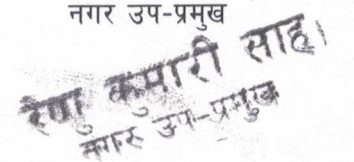 नगर उप-प्रमुख
रेणु कुमारी साह।
नगर उप-प्रमुख